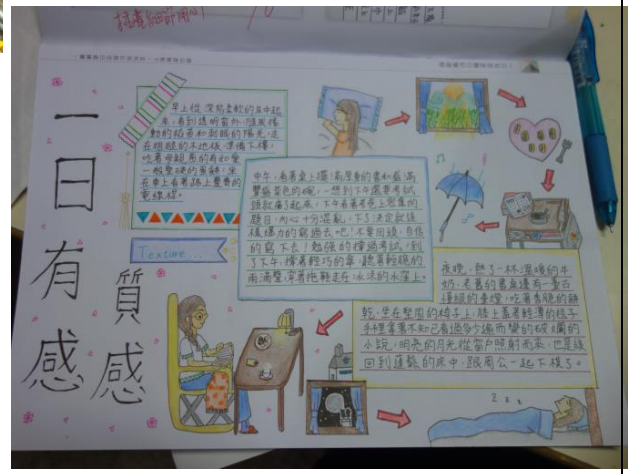 一日有感
質感
Texture...
早上從深陷柔軟的床中起
來,看到透明窗外,隨風擺
動的稻苗和刺眼的陽光,走
在粗糙的木地板,準備下樓,
吃著母親用的有如愛
一般堅硬的蛋餅,坐
在車上看著路上疊疊的
電線桿。
中午,看著桌上擺滿厚重的書和盛滿
豐盛菜色的碗,一想到下午還要考試
頭就痛了起來,下午看著考卷上密集的
題目,內心十分混亂,下了決定就這
樣
的寫過去吧!不要回頭,自信
的寫下去!勉強的撐過考試,到
了下午,撐著輕巧的傘,聽著輕脆的
雨滴聲,穿著拖鞋走在冰涼的水窪上。
夜晚,熱了一杯溫暖的牛
奶,老舊的書桌邊有一盞古
舊的臺燈,吃著香脆的餅
乾,坐在堅固的椅子上,膝上蓋著輕薄的毯子
手裡拿著不知已看過多少遍而變的破爛的
小說,明亮的月光從窗戶照射而來,也是該
回到蓬鬆的床中,跟周公一起下棋了。
z z z